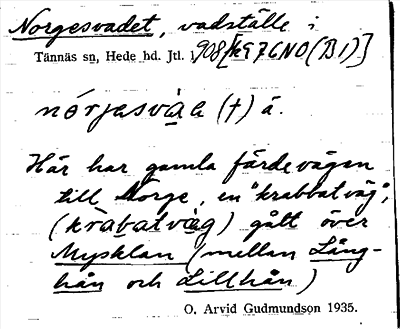 Norgesvadet, vadställe i
Tännäs sn, Hede hd. Jtl. i 908 [K97GNO (B1)]
nórjasvàɑ (t) ɑ.
Här har gamla färdevägen
till Norge, en "krabbatväg",
(kràbatvàg) gått över
Mysklan (mellan Lång-
hån och Lillhån)
O. Arvid Gudmundson 1935.